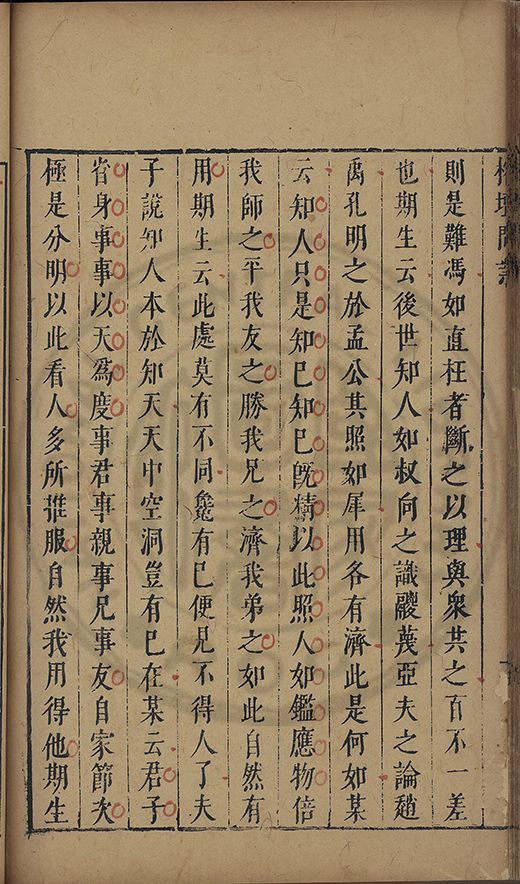 則是難馮如直枉者斷之以理與衆共之百不一差
也期生云後世知人如叔向之識鬷蔑亞夫之論趙
禹孔明之於孟公其照如犀用各有濟此是何如某
云知人只是知巳知巳旣精以此照人如鑑應物倍
我師之平我友之勝我兄之濟我弟之如此自然有
用期生云此處莫有不同纔有巳便見不得人了夫
子說知人本於知天天中空洞豈有巳在某云君子
省身事事以天爲度事君事親事兄事友自家節次
極是分明以此看人多所推服自然我用得他期生